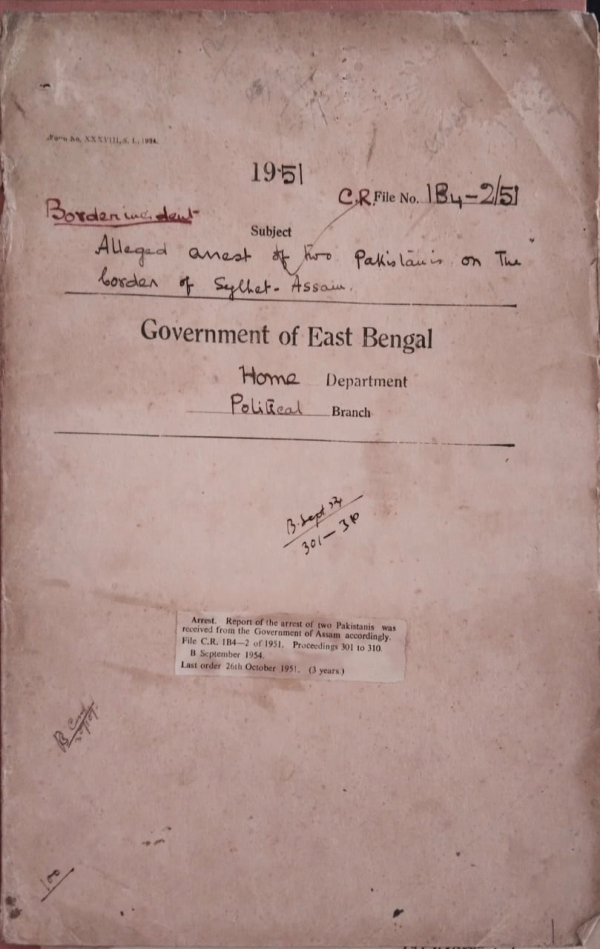 Form No. XXXVIII, S. L., 1924.
1951
C.R. File No. 1B4-2/51
Border incident
Subject
Alleged arrest of two Pakistanis on The
border of Sylhet-Assam.
Government of East Bengal
Home Department
Political Branch
B. Sept 54
301-310
Arrest. Report of the arrest of two Pakistanis was
received from the Government of Assam accordingly.
File C.R. 1B4—2 of 1951. Proceedings 301 to 310
B September 1954.
Last order 26th October 1951. (3 years)
B
100